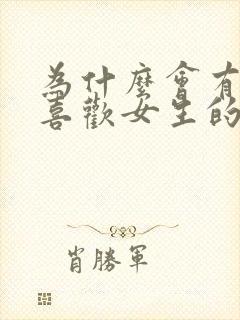 為什麼會有
喜歡女生的
肖勝軍